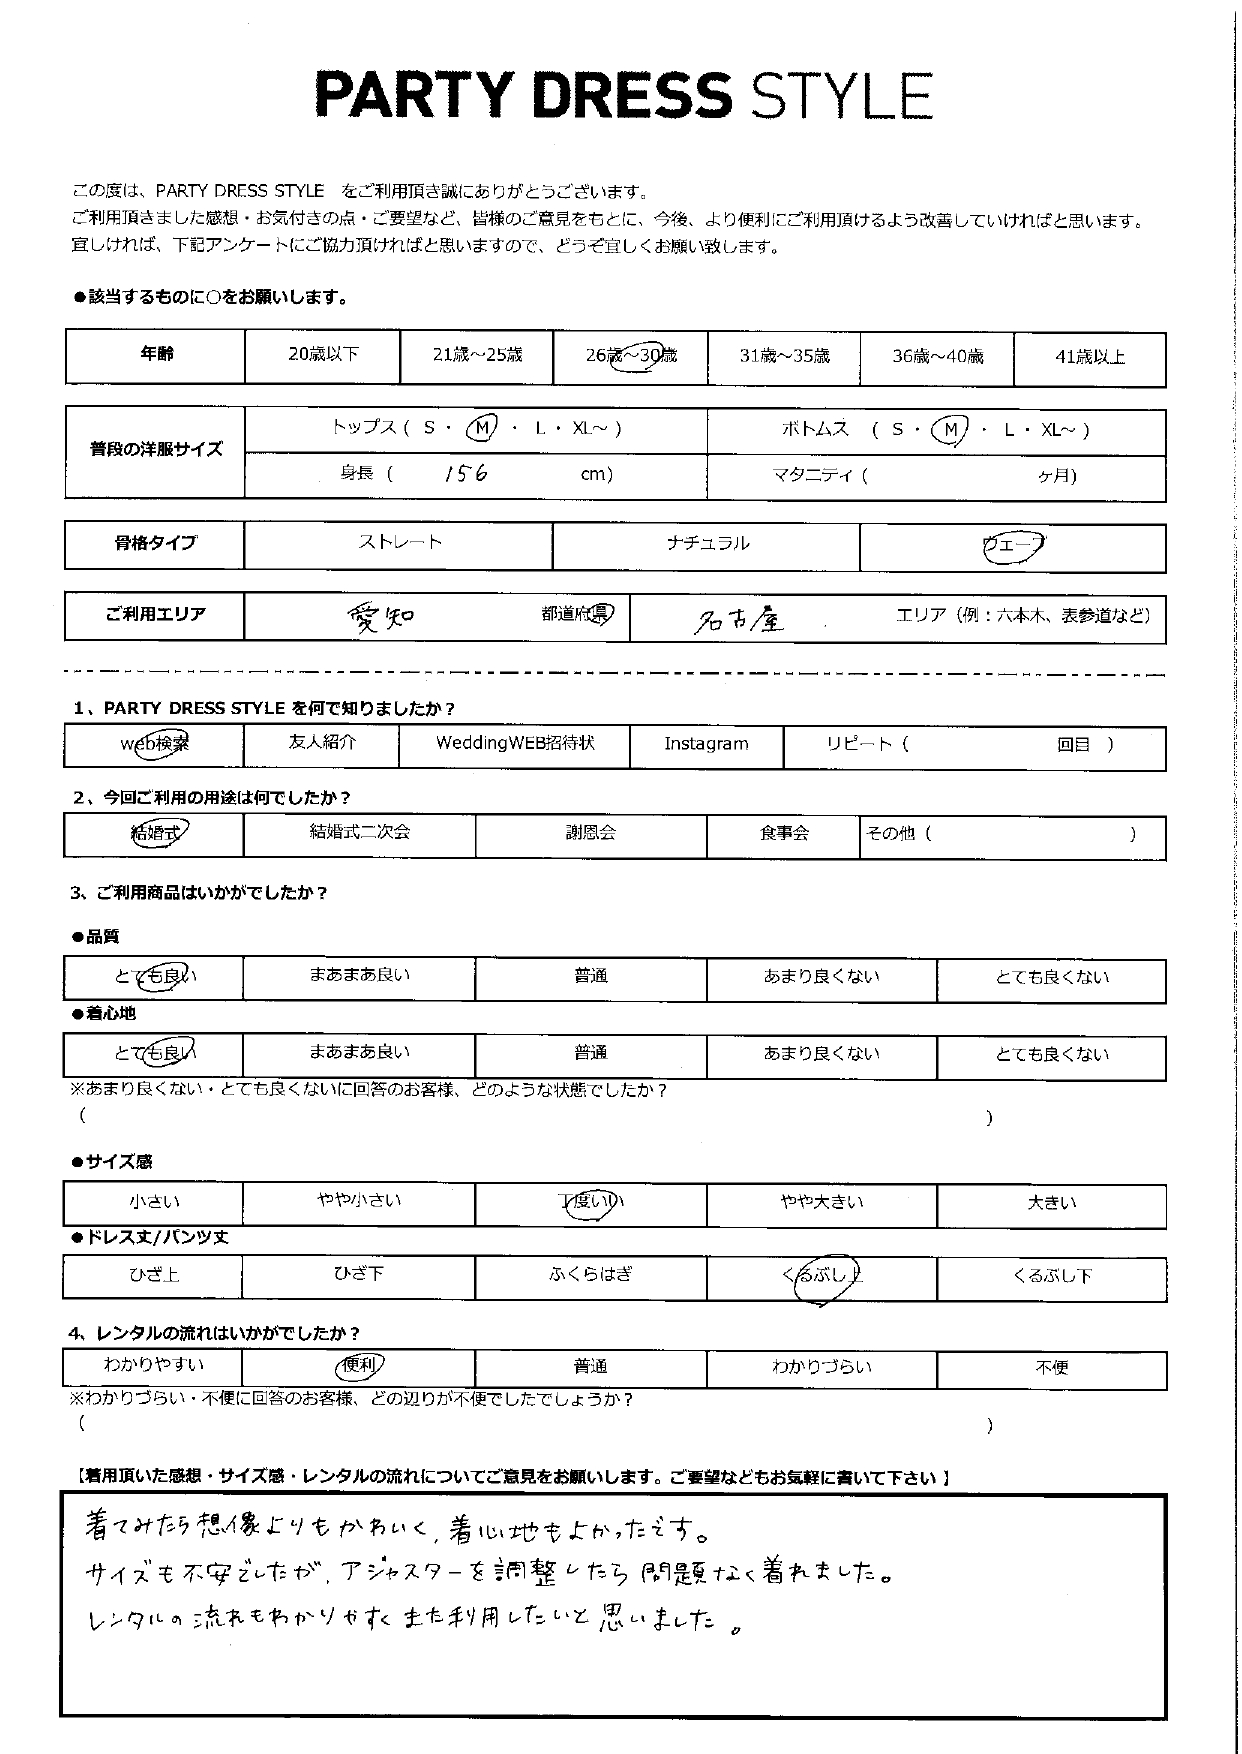 PARTY DRESS STYLE
この度は、PARTY DRESS STYLE　をご利用頂き誠にありがとうございます。
ご利用頂きました感想・お気付きの点・ご要望など、皆様のご意見をもとに、今後、より便利にご利用頂けるよう改善していければと思います。
宜しければ、下記アンケートにご協力頂ければと思いますので、どうぞ宜しくお願い致します。
●該当するものに○をお願いします。
年齢 20歳以下 21歳～25歳 26歳～30歳 31歳～35歳 36歳～40歳 41歳以上
普段の洋服サイズ トップス ( S ・ M ・ L ・ XL～ ) ボトムス ( S ・ M ・ L ・ XL～ )
身長 ( 156 cm) マタニティ ( ヶ月)
骨格タイプ ストレート ナチュラル ウェーブ
ご利用エリア 愛知 都道府県 名古屋 エリア（例：六本木、表参道など）
1、PARTY DRESS STYLE を何で知りましたか？
web検索 友人紹介 WeddingWEB招待状 Instagram リピート ( 回目 )
2、今回ご利用の用途は何でしたか？
結婚式 結婚式二次会 謝恩会 食事会 その他 ( )
3、ご利用商品はいかがでしたか？
●品質
とても良い まあまあ良い 普通 あまり良くない とても良くない
●着心地
とても良い まあまあ良い 普通 あまり良くない とても良くない
※あまり良くない・とても良くないに回答のお客様、どのような状態でしたか？
( )
●サイズ感
小さい やや小さい 丁度いい やや大きい 大きい
●ドレス丈/パンツ丈
ひざ上 ひざ下 ふくらはぎ くるぶし上 くるぶし下
4、レンタルの流れはいかがでしたか？
わかりやすい 便利 普通 わかりづらい 不便
※わかりづらい・不便に回答のお客様、どの辺りが不便でしたでしょうか？
( )
【着用頂いた感想・サイズ感・レンタルの流れについてご意見をお願いします。ご要望などもお気軽に書いて下さい 】
着てみたら想像よりもかわいく、着心地もよかったです。
サイズも不安でしたが、アジャスターを調整したら問題なく着れました。
レンタルの流れもわかりやすくまた利用したいと思いました。